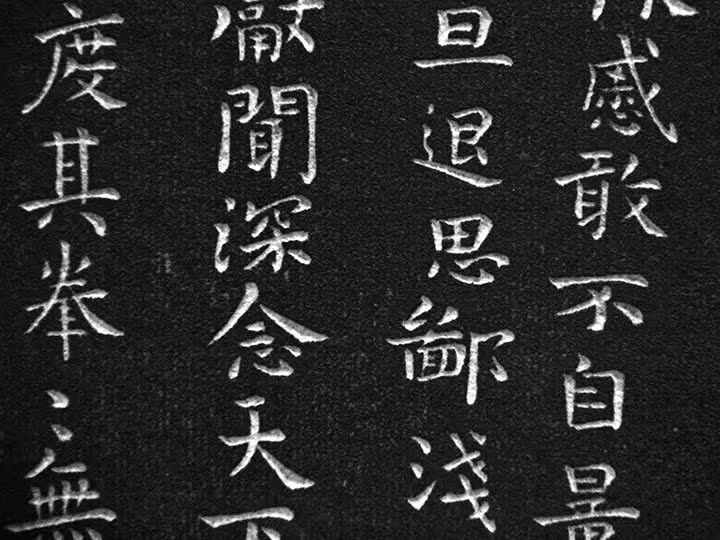 慼敢不自量
旦退思鄙淺
獻聞深念天下
度其拳〻無